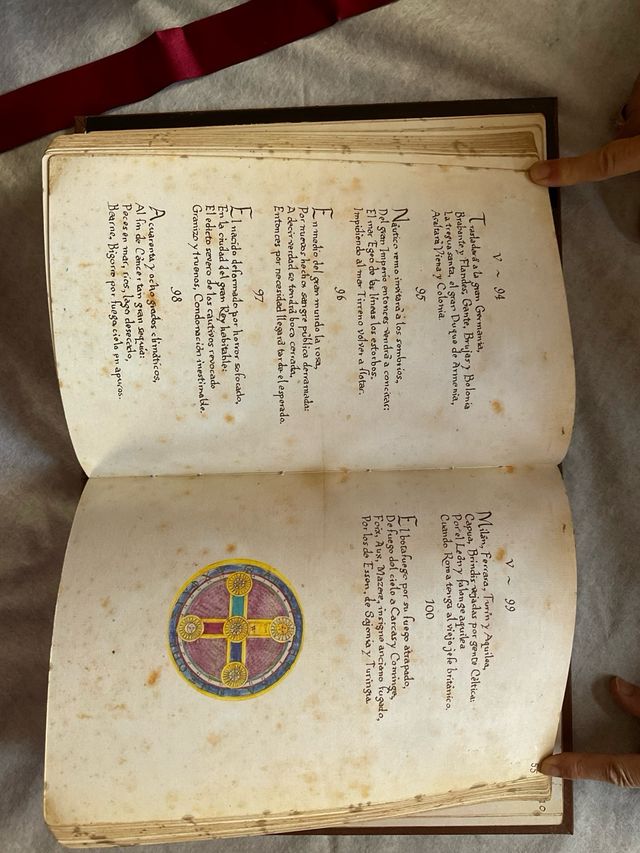 V ~ 94
Trasladará a la gran Germania,
Brabante y Flandes, Gante, Brujas y Bolonia
La tregua santa, el gran Duque de Armenia,
Asaltará Viena y Colonia.
95
Náutico remo invitará à los sombrios,
Del gran Imperio entonces vendrá a concitar:
El mar Egeo de las lineas los estorbos.
Impidiendo al mar Tirreno volver a flotar.
96
En medio del gran mundo la rosa,
Por nuevos hechos sangre pública derramada:
A decir verdad se tendrá boca cerrada,
Entonces por necesidad llegará tarde el esperado.
97
El nacido deformado por horror sofocado,
En la ciudad del gran Rey habitable:
El edicto severo de los cautivos revocado
Granizo y truenos, Condonación inestimable.
98
A cuarenta y ocho grados climáticos,
Al fin de Cáncer tan gran sequia:
Peces en mar, rios, lago desecado,
Bearne, Bigorre por fuego cielo en apuros.
V ~ 99
Milán, Ferrara, Turin y Aquilea,
Capua, Brindis vejadas por gente Céltica:
Por el León y falange aquilea
Cuando Roma tenga al viejo jefe británico.
100
El botafuego por su fuego atrapado,
De fuego del cielo a Carcas y Cominge,
Foix, Aux, Mazere, insigne anciano fugado,
Por los de Essen, de Sajonia y Turingia.
55